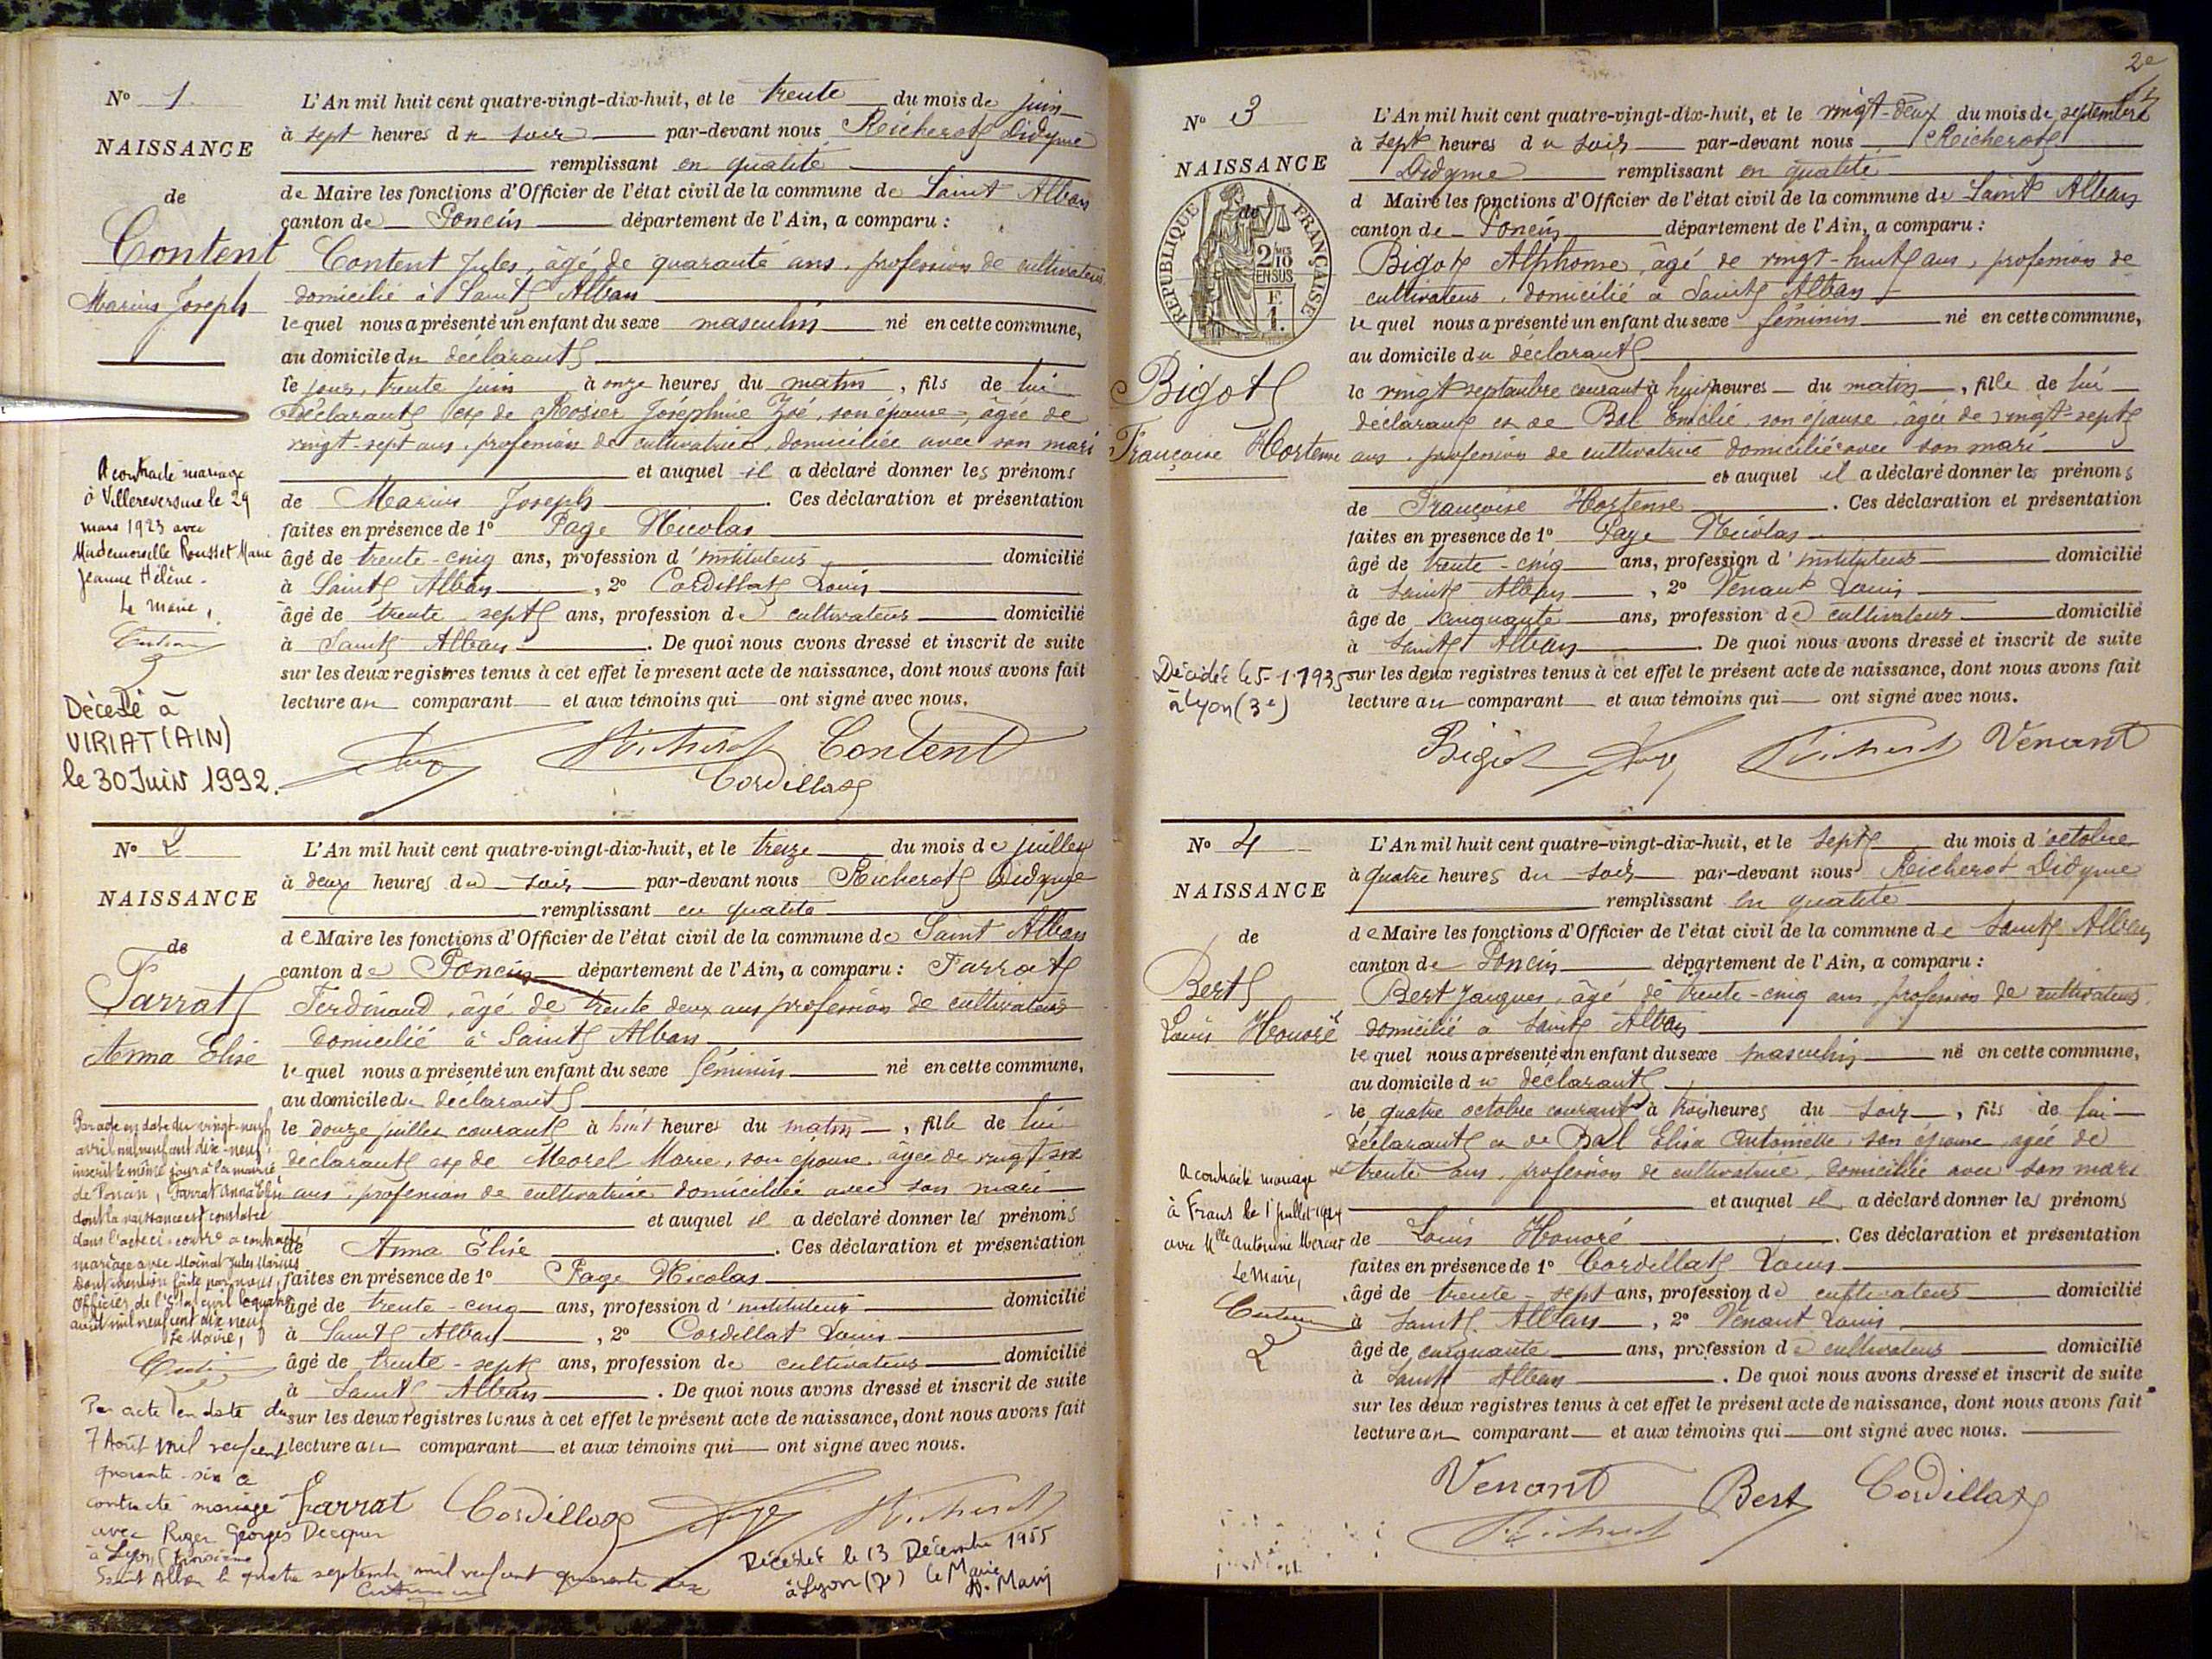 N° 1.
NAISSANCE
de
Content
Marius Joseph
L'An mil huit cent quatre-vingt-dix-huit, et le trente du mois de juin
à sept heures du soir par-devant nous Reicherot Didyme
remplissant en qualité
de Maire les fonctions d'Officier de l'état civil de la commune de Saint Alban
canton de Poncin département de l'Ain, a comparu :
Content Jules, âgé de quarante ans, profession de cultivateur
domicilié à Saint Alban
lequel nous a présenté un enfant du sexe masculin né en cette commune,
au domicile du déclarant
le jour, trente juin à onze heures du matin, fils de lui
déclarant et de Rosier Joséphine Zoé, son épouse, âgée de
vingt-sept ans, profession de cultivatrice, domiciliée avec son mari
et auquel il a déclaré donner les prénoms
de Marius Joseph. Ces déclaration et présentation
faites en présence de 1° Page Nicolas
âgé de trente-cinq ans, profession d'instituteur domicilié
à Saint Alban, 2° Cordillat Louis
âgé de trente sept ans, profession de cultivateur domicilié
à Saint Alban. De quoi nous avons dressé et inscrit de suite
sur les deux registres tenus à cet effet le présent acte de naissance, dont nous avons fait
lecture au comparant et aux témoins qui ont signé avec nous.
A contracté mariage
à Villereversure le 29
mars 1923 avec
Mademoiselle Rousset Marie
Jeanne Hélène.
Le Maire,
Décédé à
VIRIAT (AIN)
le 30 Juin 1992.
Content
Cordillat
N° 2
NAISSANCE
de
Farrat
Anna Elise
L'An mil huit cent quatre-vingt-dix-huit, et le treize du mois de juillet
à deux heures du soir par-devant nous Reicherot Didyme
remplissant en qualité
de Maire les fonctions d'Officier de l'état civil de la commune de Saint Alban
canton de Poncin département de l'Ain, a comparu : Farrat
Ferdinand, âgé de trente deux ans profession de cultivateur
domicilié à Saint Alban
lequel nous a présenté un enfant du sexe féminin né en cette commune,
au domicile du déclarant
le douze juillet courant à huit heures du matin, fille de lui
déclarant et de Morel Marie, son épouse, âgée de vingt six
ans, profession de cultivatrice domiciliée avec son mari
et auquel il a déclaré donner les prénoms
de Anna Elise. Ces déclaration et présentation
faites en présence de 1° Page Nicolas
âgé de trente-cinq ans, profession d'instituteur domicilié
à Saint Alban, 2° Cordillat Louis
âgé de trente-sept ans, profession de cultivateur domicilié
à Saint Alban. De quoi nous avons dressé et inscrit de suite
sur les deux registres tenus à cet effet le présent acte de naissance, dont nous avons fait
lecture au comparant et aux témoins qui ont signé avec nous.
Par acte en date du vingt-neuf
avril mil neuf cent dix-neuf,
inscrit le même jour à la mairie
de Poncin, Farrat Anna Elise
dont la naissance est constatée
dans l'acte ci-contre a contracté
mariage avec Moinat Jules Marius
Dont mention faite par nous,
Officier de l'Etat civil le quatre
août mil neuf cent dix neuf
Le Maire,
Par acte en date du
7 Août mil neuf cent
quarante-six a
contracté mariage
avec Roger Georges Decquer
à Lyon (troisième)
Saint Alban le quatre septembre mil neuf cent quarante six
Farrat Cordillat
Décédée le 13 Décembre 1955
à Lyon (7e) Le Maire
2e
N° 3
NAISSANCE
de
REPUBLIQUE FRANÇAISE
2/10 EN SUS
F.
1.
Bigot
Françoise Hortense
L'An mil huit cent quatre-vingt-dix-huit, et le vingt-deux du mois de septembre
à sept heures du soir par-devant nous Reicherot
Didyme remplissant en qualité
d Maire les fonctions d'Officier de l'état civil de la commune de Saint Alban
canton de Poncin département de l'Ain, a comparu :
Bigot Alphonse, âgé de vingt-huit ans, profession de
cultivateur, domicilié à Saint Alban
lequel nous a présenté un enfant du sexe féminin né en cette commune,
au domicile du déclarant
le vingt septembre courant à huit heures du matin, fille de lui
déclarant et de Bal Emélie, son épouse, âgée de vingt-sept
ans, profession de cultivatrice domiciliée avec son mari
et auquel il a déclaré donner les prénoms
de Françoise Hortense. Ces déclaration et présentation
faites en présence de 1° Page Nicolas
âgé de trente-cinq ans, profession d'instituteur domicilié
à Saint Alban, 2° Venant Louis
âgé de cinquante ans, profession de cultivateur domicilié
à Saint Alban. De quoi nous avons dressé et inscrit de suite
sur les deux registres tenus à cet effet le présent acte de naissance, dont nous avons fait
lecture au comparant et aux témoins qui ont signé avec nous.
Décédée le 5-1-1935
à Lyon (3e)
Bigot Venant
N° 4
NAISSANCE
de
Bert
Louis Honoré
L'An mil huit cent quatre-vingt-dix-huit, et le sept du mois d'octobre
à quatre heures du soir par-devant nous Reicherot Didyme
remplissant en qualité
de Maire les fonctions d'Officier de l'état civil de la commune de Saint Alban
canton de Poncin département de l'Ain, a comparu :
Bert Jacques, âgé de trente-cinq ans, profession de cultivateur,
domicilié à Saint Alban
lequel nous a présenté un enfant du sexe masculin né en cette commune,
au domicile du déclarant
le quatre octobre courant à trois heures du soir, fils de lui
déclarant et de Bal Elisa Antoinette, son épouse, âgée de
trente ans, profession de cultivatrice, domiciliée avec son mari
et auquel il a déclaré donner les prénoms
de Louis Honoré. Ces déclaration et présentation
faites en présence de 1° Cordillat Louis
âgé de trente-sept ans, profession de cultivateur domicilié
à Saint Alban, 2° Venant Louis
âgé de cinquante ans, profession de cultivateur domicilié
à Saint Alban. De quoi nous avons dressé et inscrit de suite
sur les deux registres tenus à cet effet le présent acte de naissance, dont nous avons fait
lecture au comparant et aux témoins qui ont signé avec nous.
A contracté mariage
à Frans le 1 juillet 1924
avec Mlle Antonine Mercier
Le Maire,
Venant Bert Cordillat